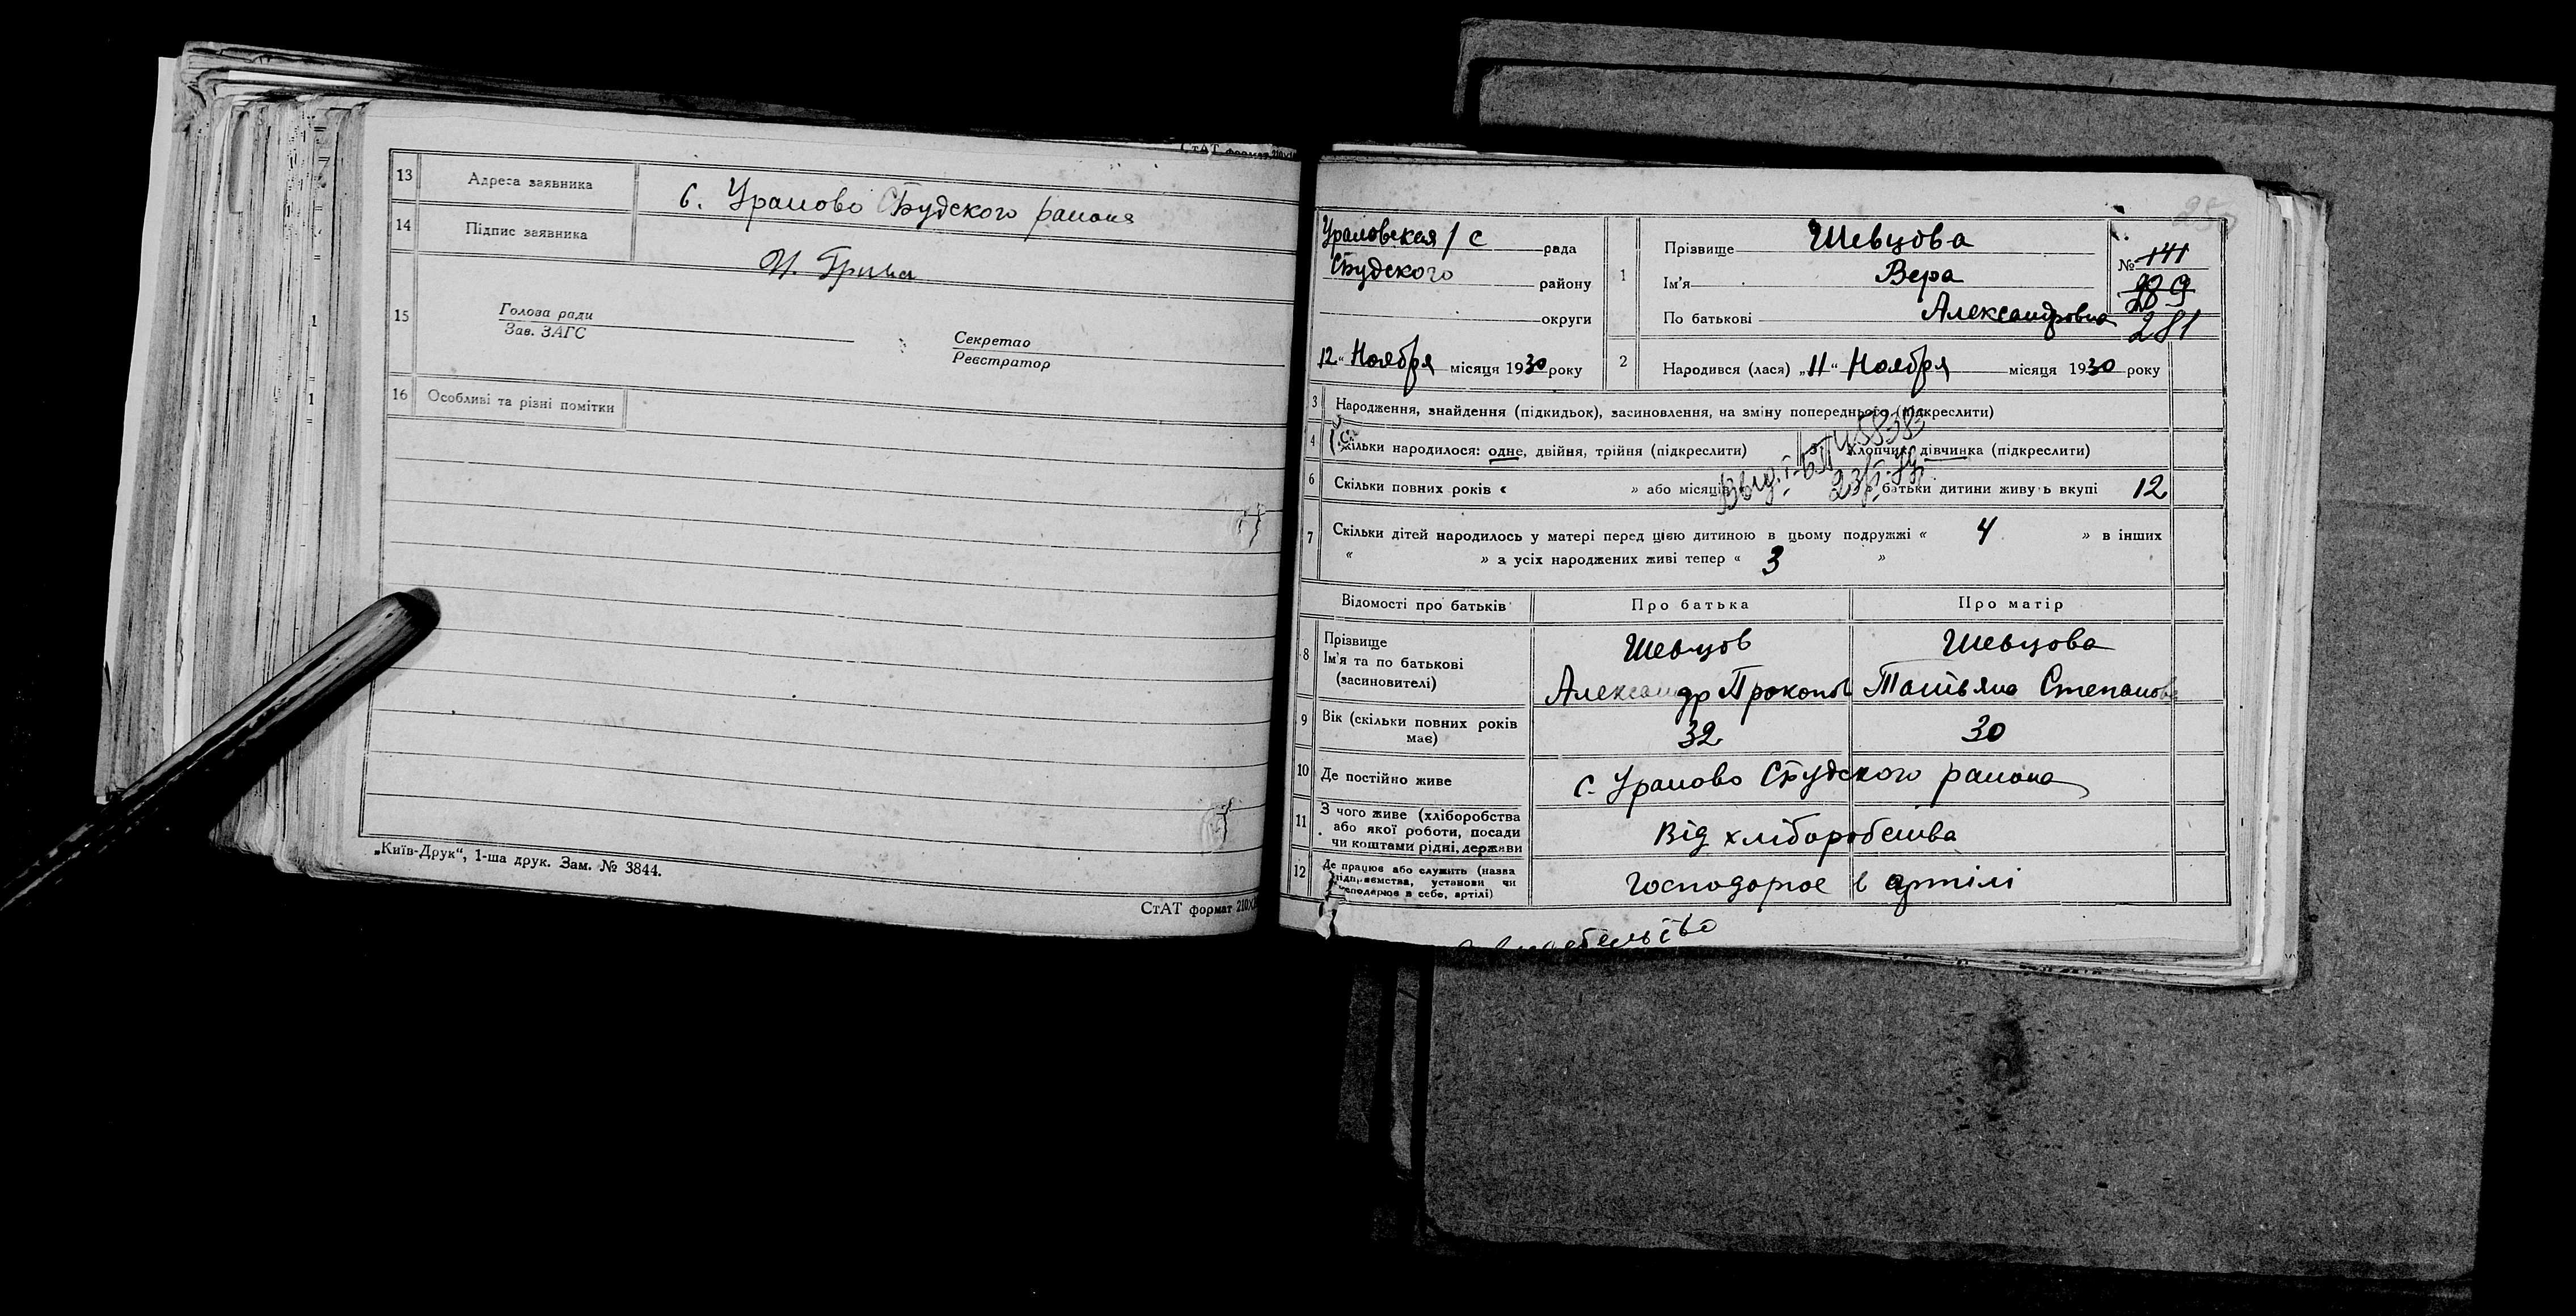 СтАТ формат 210×
13 Адреса заявника с. Ураиово СБудского района
14 Підпис заявника
15 Голова ради
Зав. ЗАГС
Секретар
Реєстратор
16 Особливі та різні помітки
„Київ-Друк“, 1-ша друк. Зам. № 3844.
СтАТ формат 210×
Ураиовская / с рада
СБудского району
округи
12 “ Ноября місяця 1930 року
1 Прізвище Шевцова
Ім'я Вера
По батькові Александровна
№ 141
289
281
2 Народився (лася) „11“ Ноября місяця 1930 року
3 Народження, знайдення (підкидьок), засиновлення, на зміну попереднього (підкреслити)
4 Скільки народилося: одне, двійня, трійня (підкреслити)
5 Хлопчик, дівчинка (підкреслити)
6 Скільки повних років « » або місяців батьки дитини живуть вкупі 12
7 Скільки дітей народилось у матері перед цією дитиною в цьому подружжі « 4 » в інших
« » з усіх народжених живі тепер « 3 »
Відомості про батьків Про батька Про матір
8 Прізвище
Ім'я та по батькові
(засиновителі)
Шевцов
Александр Прокопов
Шевцова
Татьяна Степанова
9 Вік (скільки повних років
має)
32 30
10 Де постійно живе с. Ураиово СБудского района
11 З чого живе (хліборобства
або якої роботи, посади
чи коштами рідні, держави
Від хліборобства
12 Де працює або служить (назва
підприємства, установи чи
господарює в себе, артілі)
Господорює в артілі